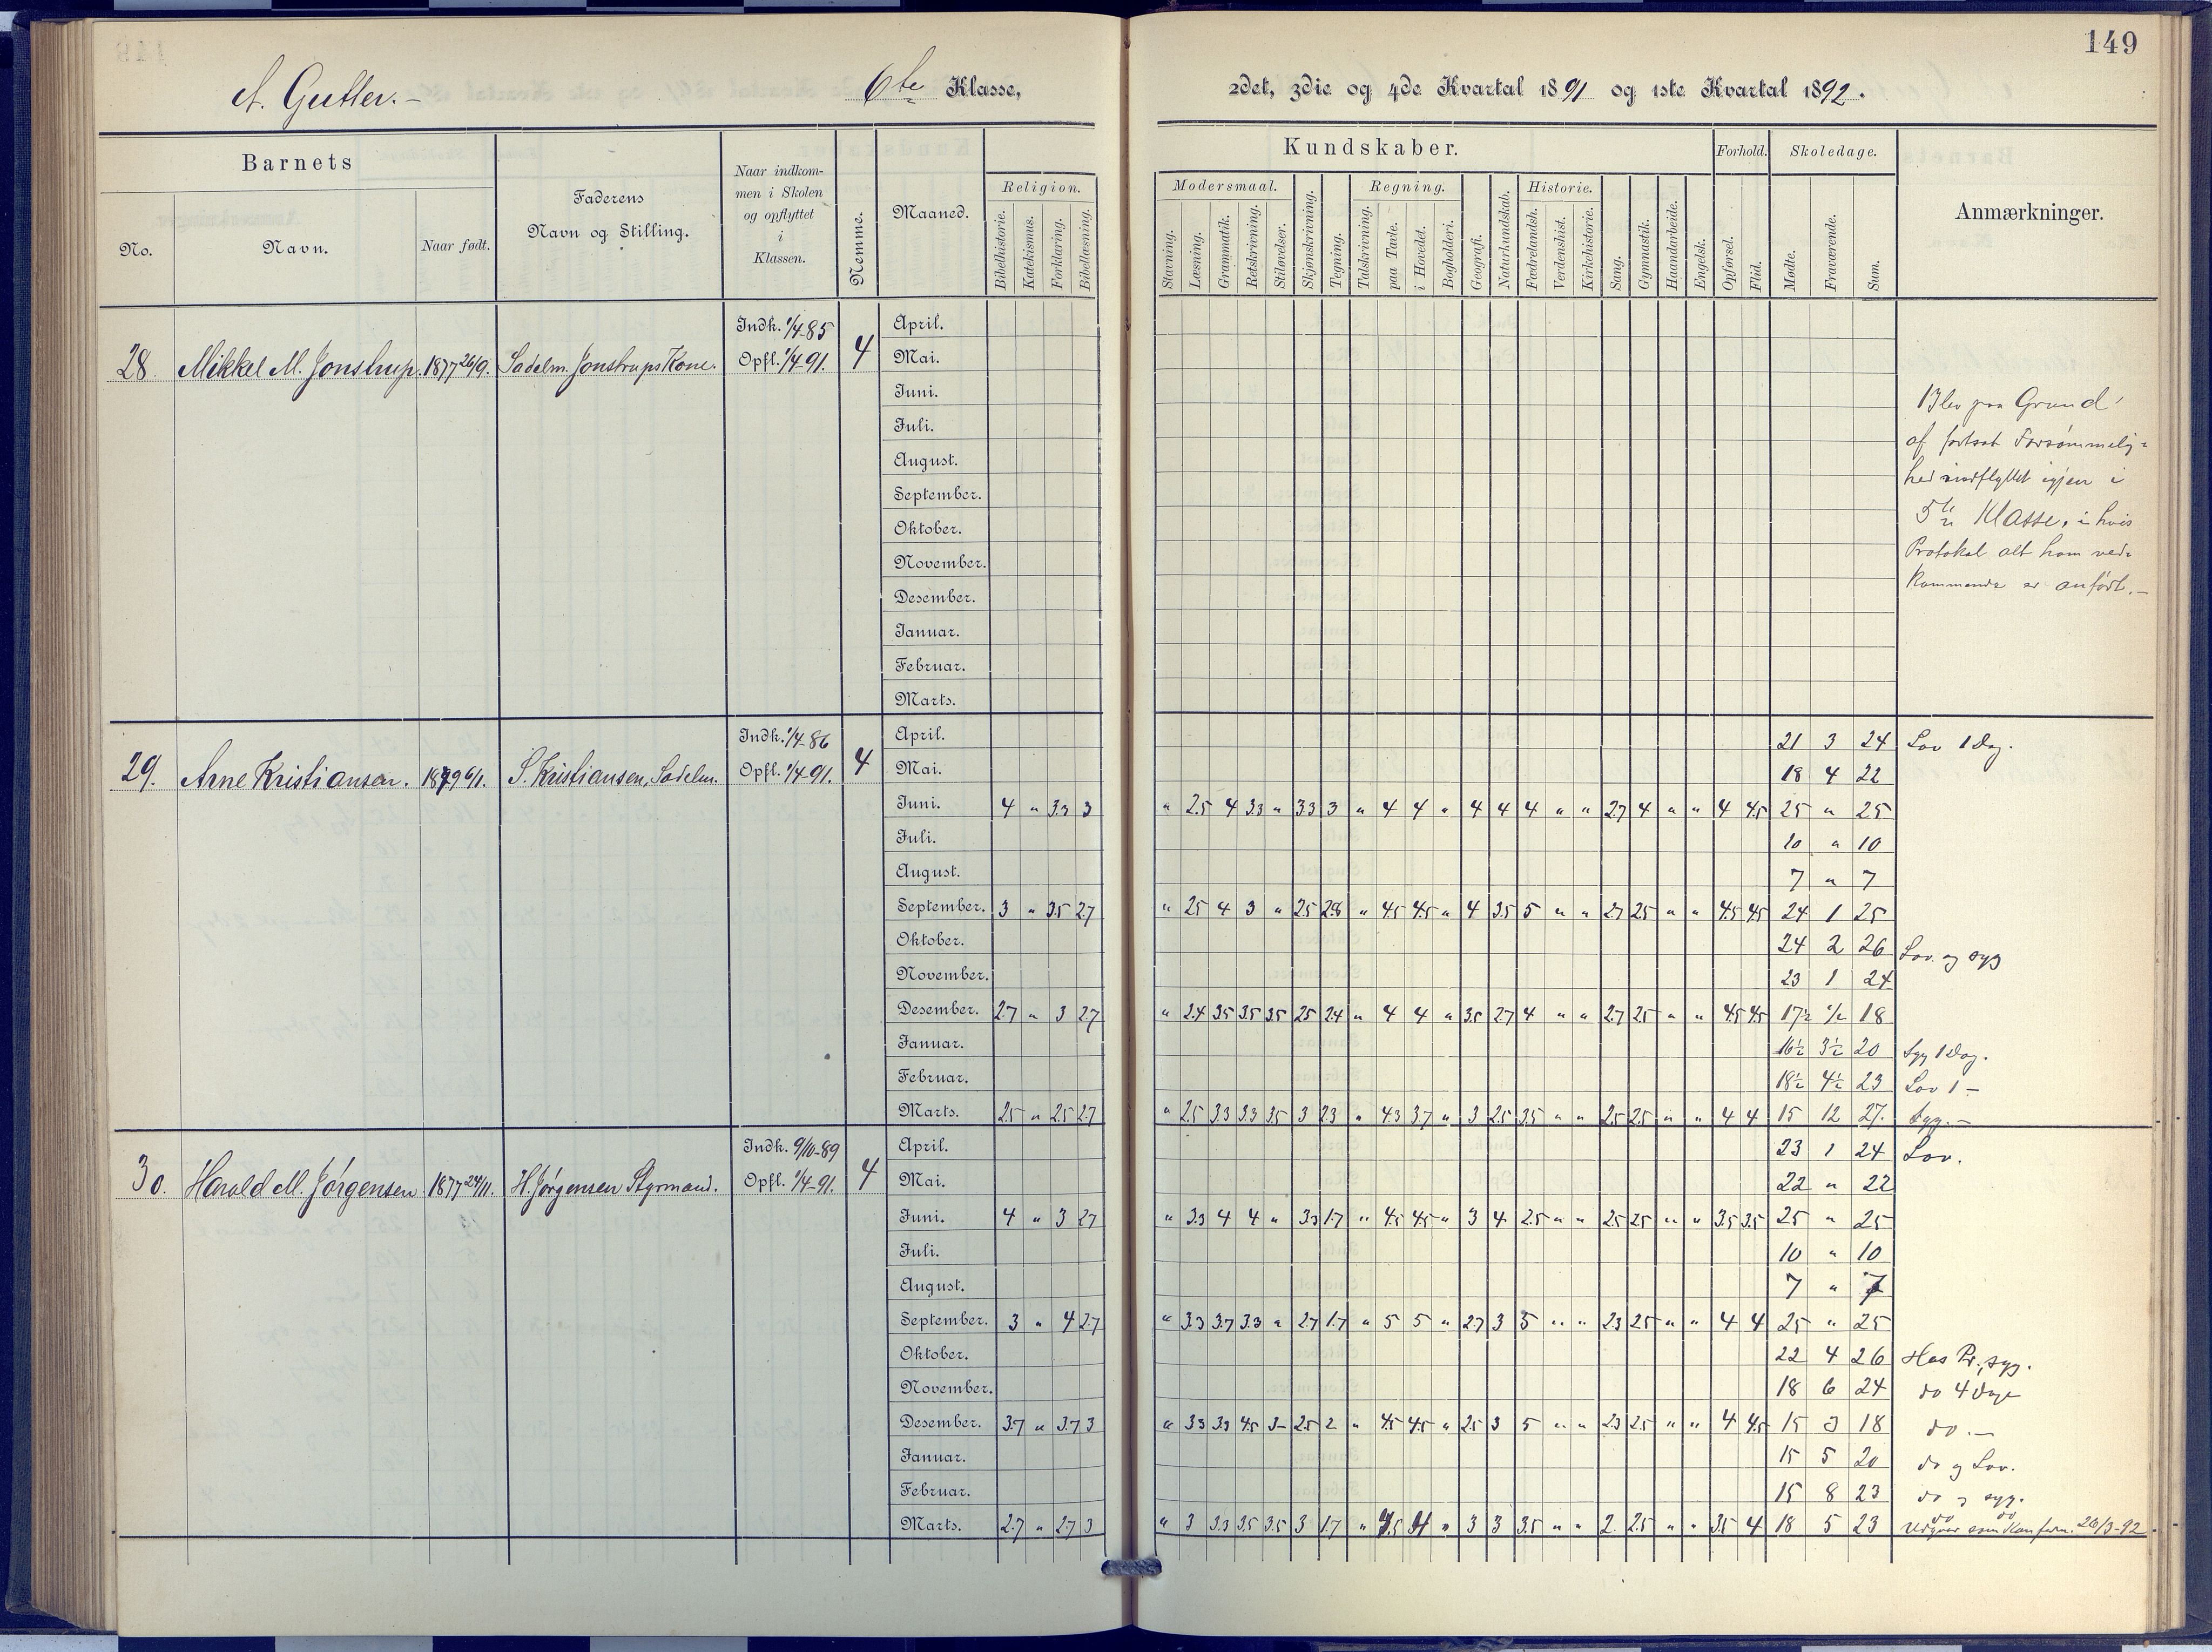 149
A. Gutter.- 6te Klasse, 2det, 3die og 4de Kvartal 1891 og 1ste Kvartal 1892.
Barnets
No. Navn. Naar født.
Faderens
Navn og Stilling.
Naar indkom-
men i Skolen
og opflyttet
i
Klassen.
Nemme.
Maaned.
Kundskaber.
Religion.
Bibelhistorie. Katekismus. Forklaring. Bibellæsning.
Modersmaal.
Stavning. Læsning. Grammatik. Retskrivning. Stiløvelser.
Skjønskrivning. Tegning.
Regning.
Talskrivning. paa Tavle. i Hovedet. Bogholderi.
Geografi. Naturkundskab.
Historie.
Fædrelandsh. Verdenshist. Kirkehistorie.
Sang. Gymnastik. Haandarbeide. Engelsk.
Forhold.
Opførsel. Flid.
Skoledage.
Mødte. Fraværende. Sum.
Anmærkninger.
28. Mikkel M. Jonstrup. 1877 26/9. Sadelm. Jonstrups Kone. Indk. 1/4-85
Opfl. 1/4-91. 4
April.
Mai.
Juni.
Juli.
August.
September.
Oktober.
November.
Desember.
Januar.
Februar.
Marts.
Blev paa Grund
af fortsat Forsømmelig=
hed indflyttet igjen i
5te Klasse, i hvis
Protokol alt ham ved=
kommende er anført.-
29. Arne Kristiansen. 1879 6/1. S. Kristiansen, Sadelm. Indk. 1/4-86
Opfl. 1/4-91. 4
April. 21 3 24 Lov 1 Dag.
Mai. 18 4 22
Juni. 4 " 3.3 3 " 2.5 4 3.3 " 3.3 3 " 4 4 " 4 4 4 " " 2.7 4 " " 4 4.5 25 " 25
Juli. 10 " 10
August. 7 " 7
September. 3 " 3.5 2.7 " 2.5 4 3 " 2.5 2.8 " 4.5 4.5 " 4 3.5 5 " " 2.7 2.5 " " 4.5 4.5 24 1 25
Oktober. 24 2 26 Lov. og syg
November. 23 1 24
Desember. 2.7 " 3 2.7 " 2.4 3.5 3.5 3.5 2.5 2.4 " 4 4 " 3.5 2.7 4 " " 2.7 2.5 " " 4.5 4.5 17½ ½ 18
Januar. 16½ 3½ 20 Syg 1 Dag.
Februar. 18½ 4½ 23 Lov 1 -
Marts. 2.5 " 2.5 2.7 " 2.5 3.3 3.3 3.5 3 2.3 " 4.3 3.7 " 3 2.5 3.5 " " 2.5 2.5 " " 4 4 15 12 27. Syg. -
30. Harald M. Jørgensen 1877 24/11. H. Jørgensen Styrmand. Indk. 9/10-89
Opfl. 1/4-91. 4
April. 23 1 24 Lov.
Mai. 22 " 22
Juni. 4 " 3 2.7 " 3.3 4 4 " 3.3 1.7 " 4.5 4.5 " 3 4 2.5 " " 2.5 2.5 " " 3.5 3.5 25 " 25
Juli. 10 " 10
August. 7 " 7
September. 3 " 4 2.7 " 3.3 3.7 3.3 " 2.7 1.7 " 5 5 " 2.7 3 5 " " 2.3 2.5 " " 4 4 25 " 25
Oktober. 22 4 26 Hos Pr., syg.
November. 18 6 24 do 4 Dage
Desember. 3.7 " 3.7 3 " 3.3 3.3 4.5 3- 2.5 2 " 4.5 4.5 " 2.5 3 5 " " 2.3 2.5 " " 4 4.5 15 3 18 do . -
Januar. 15 5 20 do og Lov.
Februar. 15 8 23 do og syg.
do do
Marts. 2.7 " 2.7 3 " 3 3.3 3.5 3.5 3 1.7 " 4.5 4 " 3 3 3.5 " " 2. 2.5 " " 3.5 4 18 5 23 Udgaar som Konfirm. 26/3-92